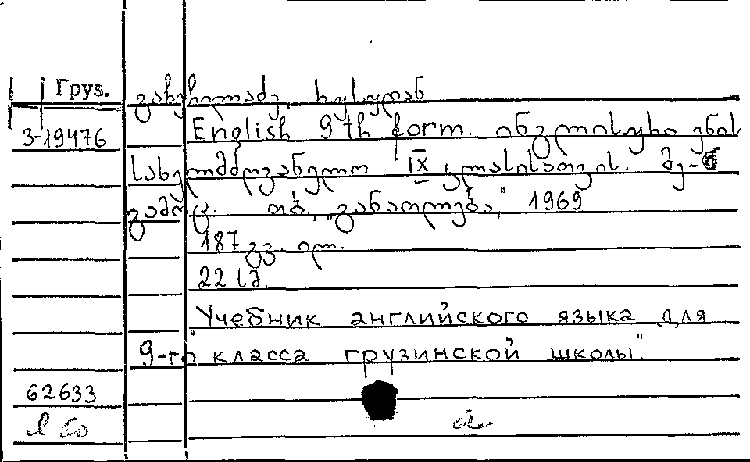 Груз. გახეჩილაძე, რუსუდან
3-19476 English 9th form. ინგლისური ენის
სახელმძღვანელო IX კლასისათვის. მე-6
გამოც. თბ., „განათლება," 1969
187 გვ. ილ.
22 სმ.
"Учебник английского языка для
9-го класса грузинской школы".
62633